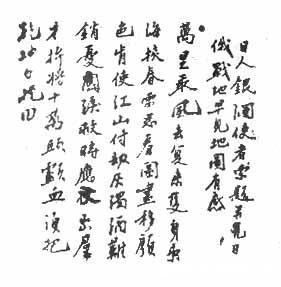 日人銀瀾使者索題並見日
俄戰地早見地圖有感
萬里乘風去復來隻身東
海挾春雷忍看圖畫移顏
色肯使江山付劫灰濁酒難
銷憂國淚救時應仗出群
才拚將十萬頭顱血須把
乾坤力挽回